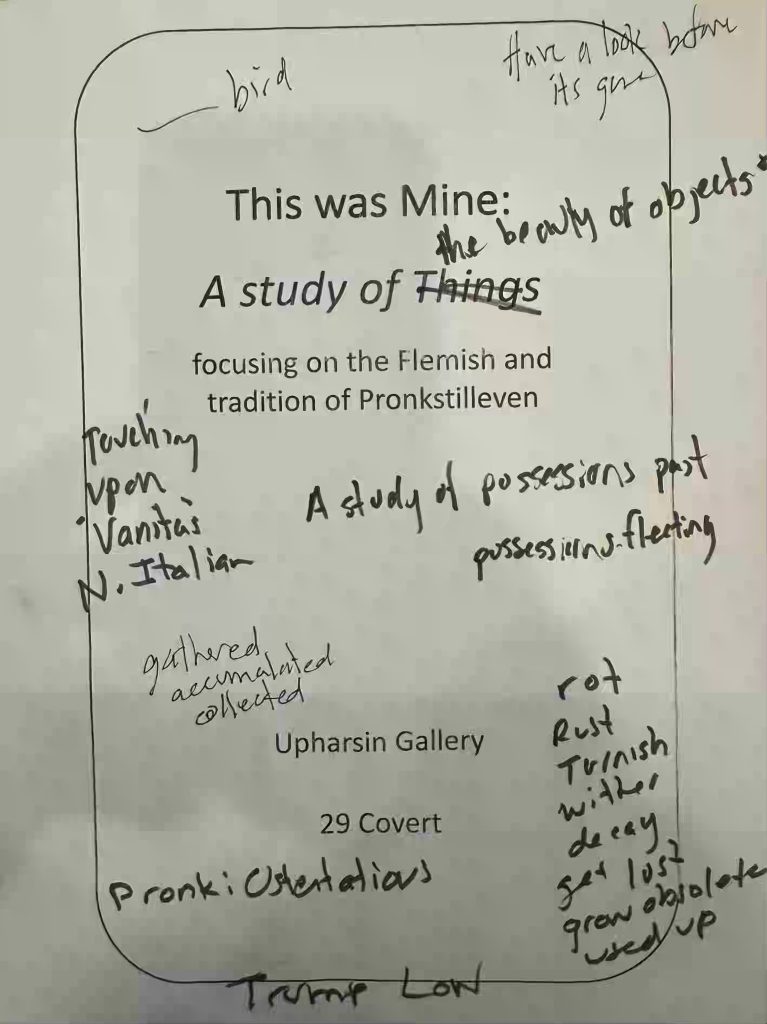 bird
Have a look before
its gone
This was Mine:
the beauty of objects*
A study of Things
focusing on the Flemish and
tradition of Pronkstilleven
Touching
upon
Vanitas
N. Italian
A study of possessions past
possessions fleeting
gathered
accumulated
collected
rot
Rust
Turnish
wither
decay
get lost
grow obsolete
used up
Upharsin Gallery
29 Covert
Pronk: Ostentatious
Trump Low